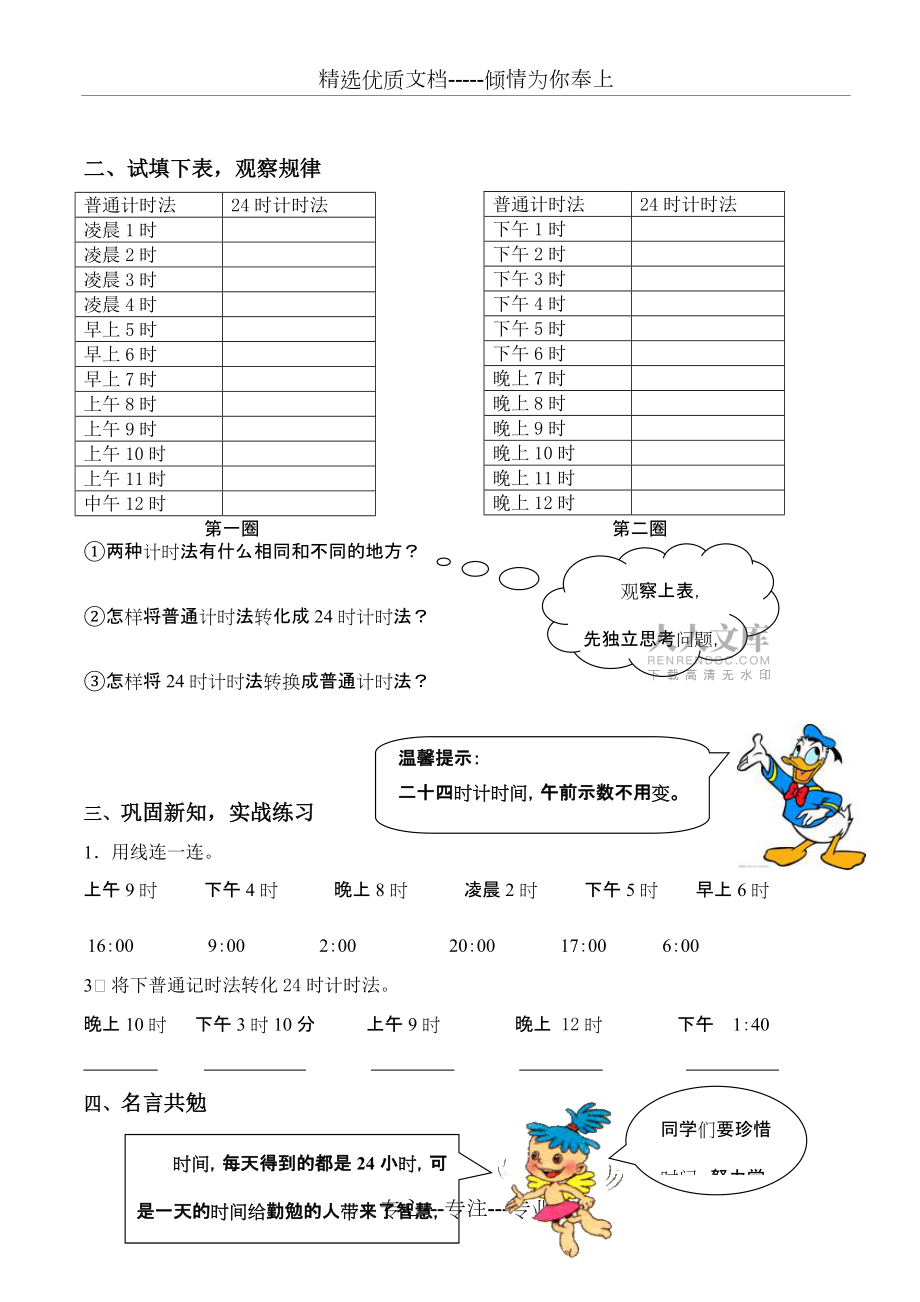 精选优质文档-----倾情为你奉上
二、试填下表，观察规律
普通计时法 24时计时法
凌晨1时
凌晨2时
凌晨3时
凌晨4时
早上5时
早上6时
早上7时
上午8时
上午9时
上午10时
上午11时
中午12时
第一圈
普通计时法 24时计时法
下午1时
下午2时
下午3时
下午4时
下午5时
下午6时
晚上7时
晚上8时
晚上9时
晚上10时
晚上11时
晚上12时
第二圈
①两种计时法有什么相同和不同的地方？
②怎样将普通计时法转化成24时计时法？
③怎样将24时计时法转换成普通计时法？
观察上表，
先独立思考问题，
人人文库
RENRENDOC.COM
下载高清无水印
温馨提示：
二十四时计时间，午前示数不用变。
三、巩固新知，实战练习
1．用线连一连。
上午9时 下午4时 晚上8时 凌晨2时 下午5时 早上6时
16:00 9:00 2:00 20:00 17:00 6:00
3 将下普通记时法转化24时计时法。
晚上10时 下午3时10分 上午9时 晚上 12时 下午 1:40
四、名言共勉
时间，每天得到的都是24小时，可
是一天的时间给勤勉的人带来了智慧，
同学们要珍惜
时间 努力学
专注---专业